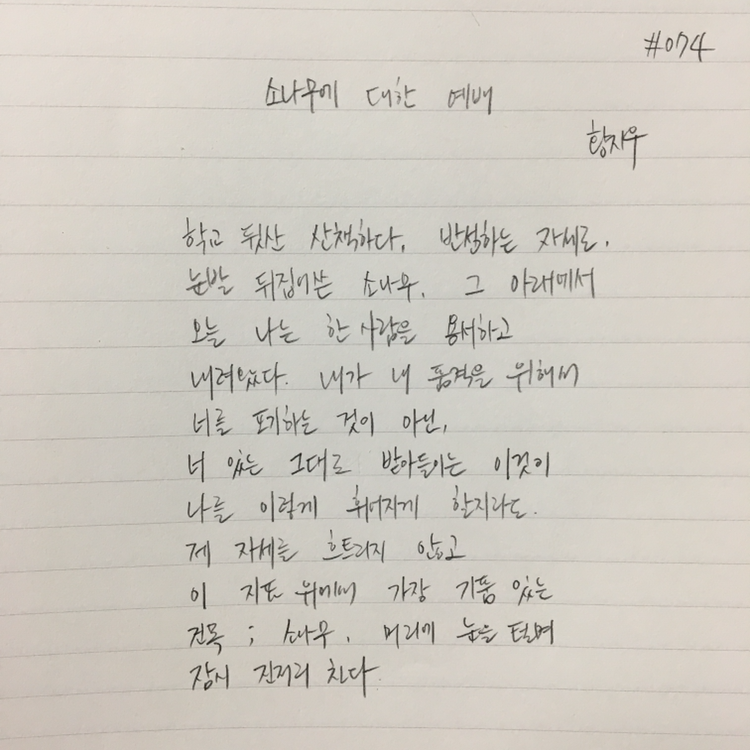 #074
소나무에 대한 예배
황지우
학교 뒷산 산책하다, 반성하는 자세로,
눈발 뒤집어쓴 소나무, 그 아래에서
오늘 나는 한 사람을 용서하고
내려왔다. 내가 내 품격을 위해서
너를 포기하는 것이 아닌,
너 있는 그대로 받아들이는 이것이
나를 이렇게 휘어지게 할지라도.
제 자세를 흐트리지 않고
이 지표 위에서 가장 기품 있는
건목 ; 소나무, 머리에 눈을 털며
잠시 진저리 친다.